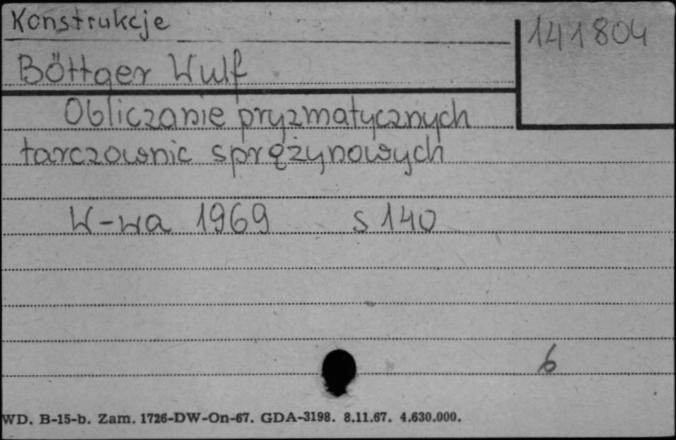 Konstrukcje
141804
Böttger Wulf
Obliczanie pryzmatycznych
tarczownic sprężynowych
W-wa 1969 s 140
6
WD. B-15-b. Zam. 1726-DW-On-67. GDA-3198. 8.11.67. 4.630.000.